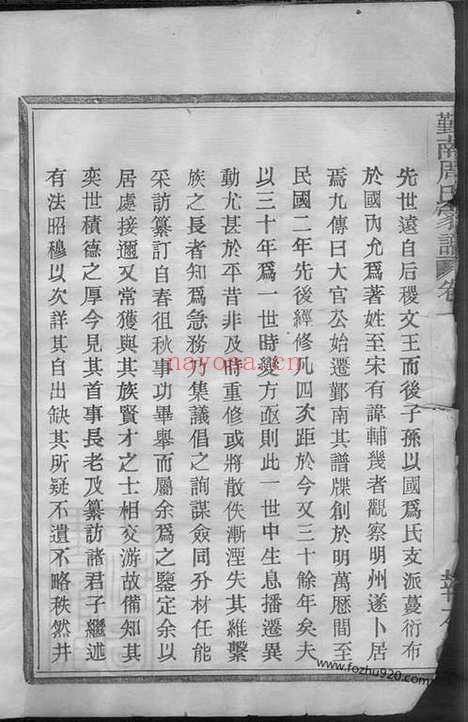 鄞南周氏家譜 卷一
先世遠自后稷文王而後子孫以國爲氏支派蔓衍布
於國內尤爲著姓至宋有諱輔幾者觀察明州遂卜居
焉九傳曰大官公始遷鄞南其譜牒創於明萬曆間至
民國二年先後經修凡四次距於今又三十餘年矣夫
以三十年爲一世時變方亟則此一世中生息播遷異
動尤甚於平昔非及時重修或將散佚漸湮失其維繫
族之長者知爲急務乃集議倡之詢謀僉同分材任能
采訪纂訂自春徂秋事功畢舉而屬余爲之鑒定余以
居處接邇又常獲與其族賢才之士相交游故備知其
奕世積德之厚今見其首事長老及纂訪諸君子繼述
有法昭穆以次詳其自出缺其所疑不遺不略秩然井
nayona.cn
www.fozhu920.com